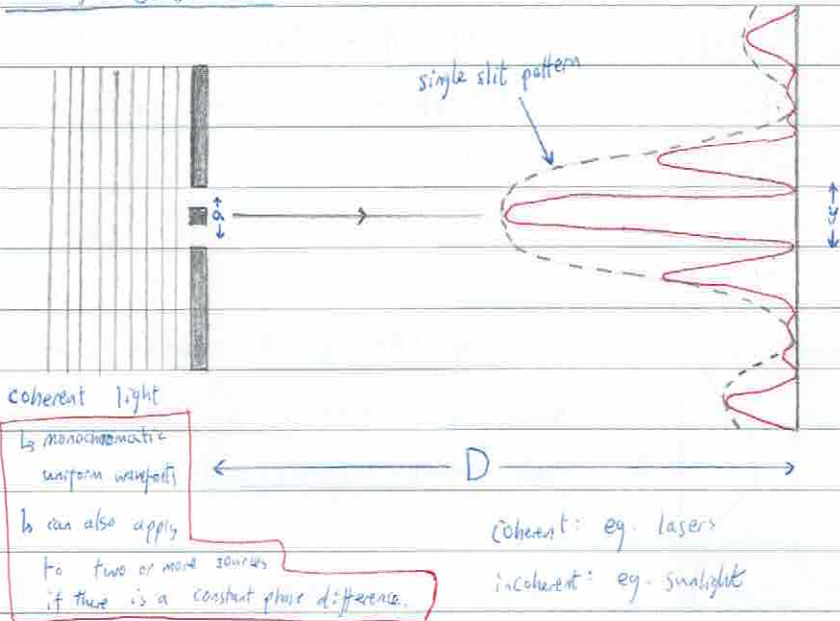 single slit pattern
a
y
coherent light
↳ monochromatic
uniform wavefronts
↳ can also apply
to two or more sources
if there is a constant phase difference.
D
coherent: eg. lasers
incoherent: eg. sunlight